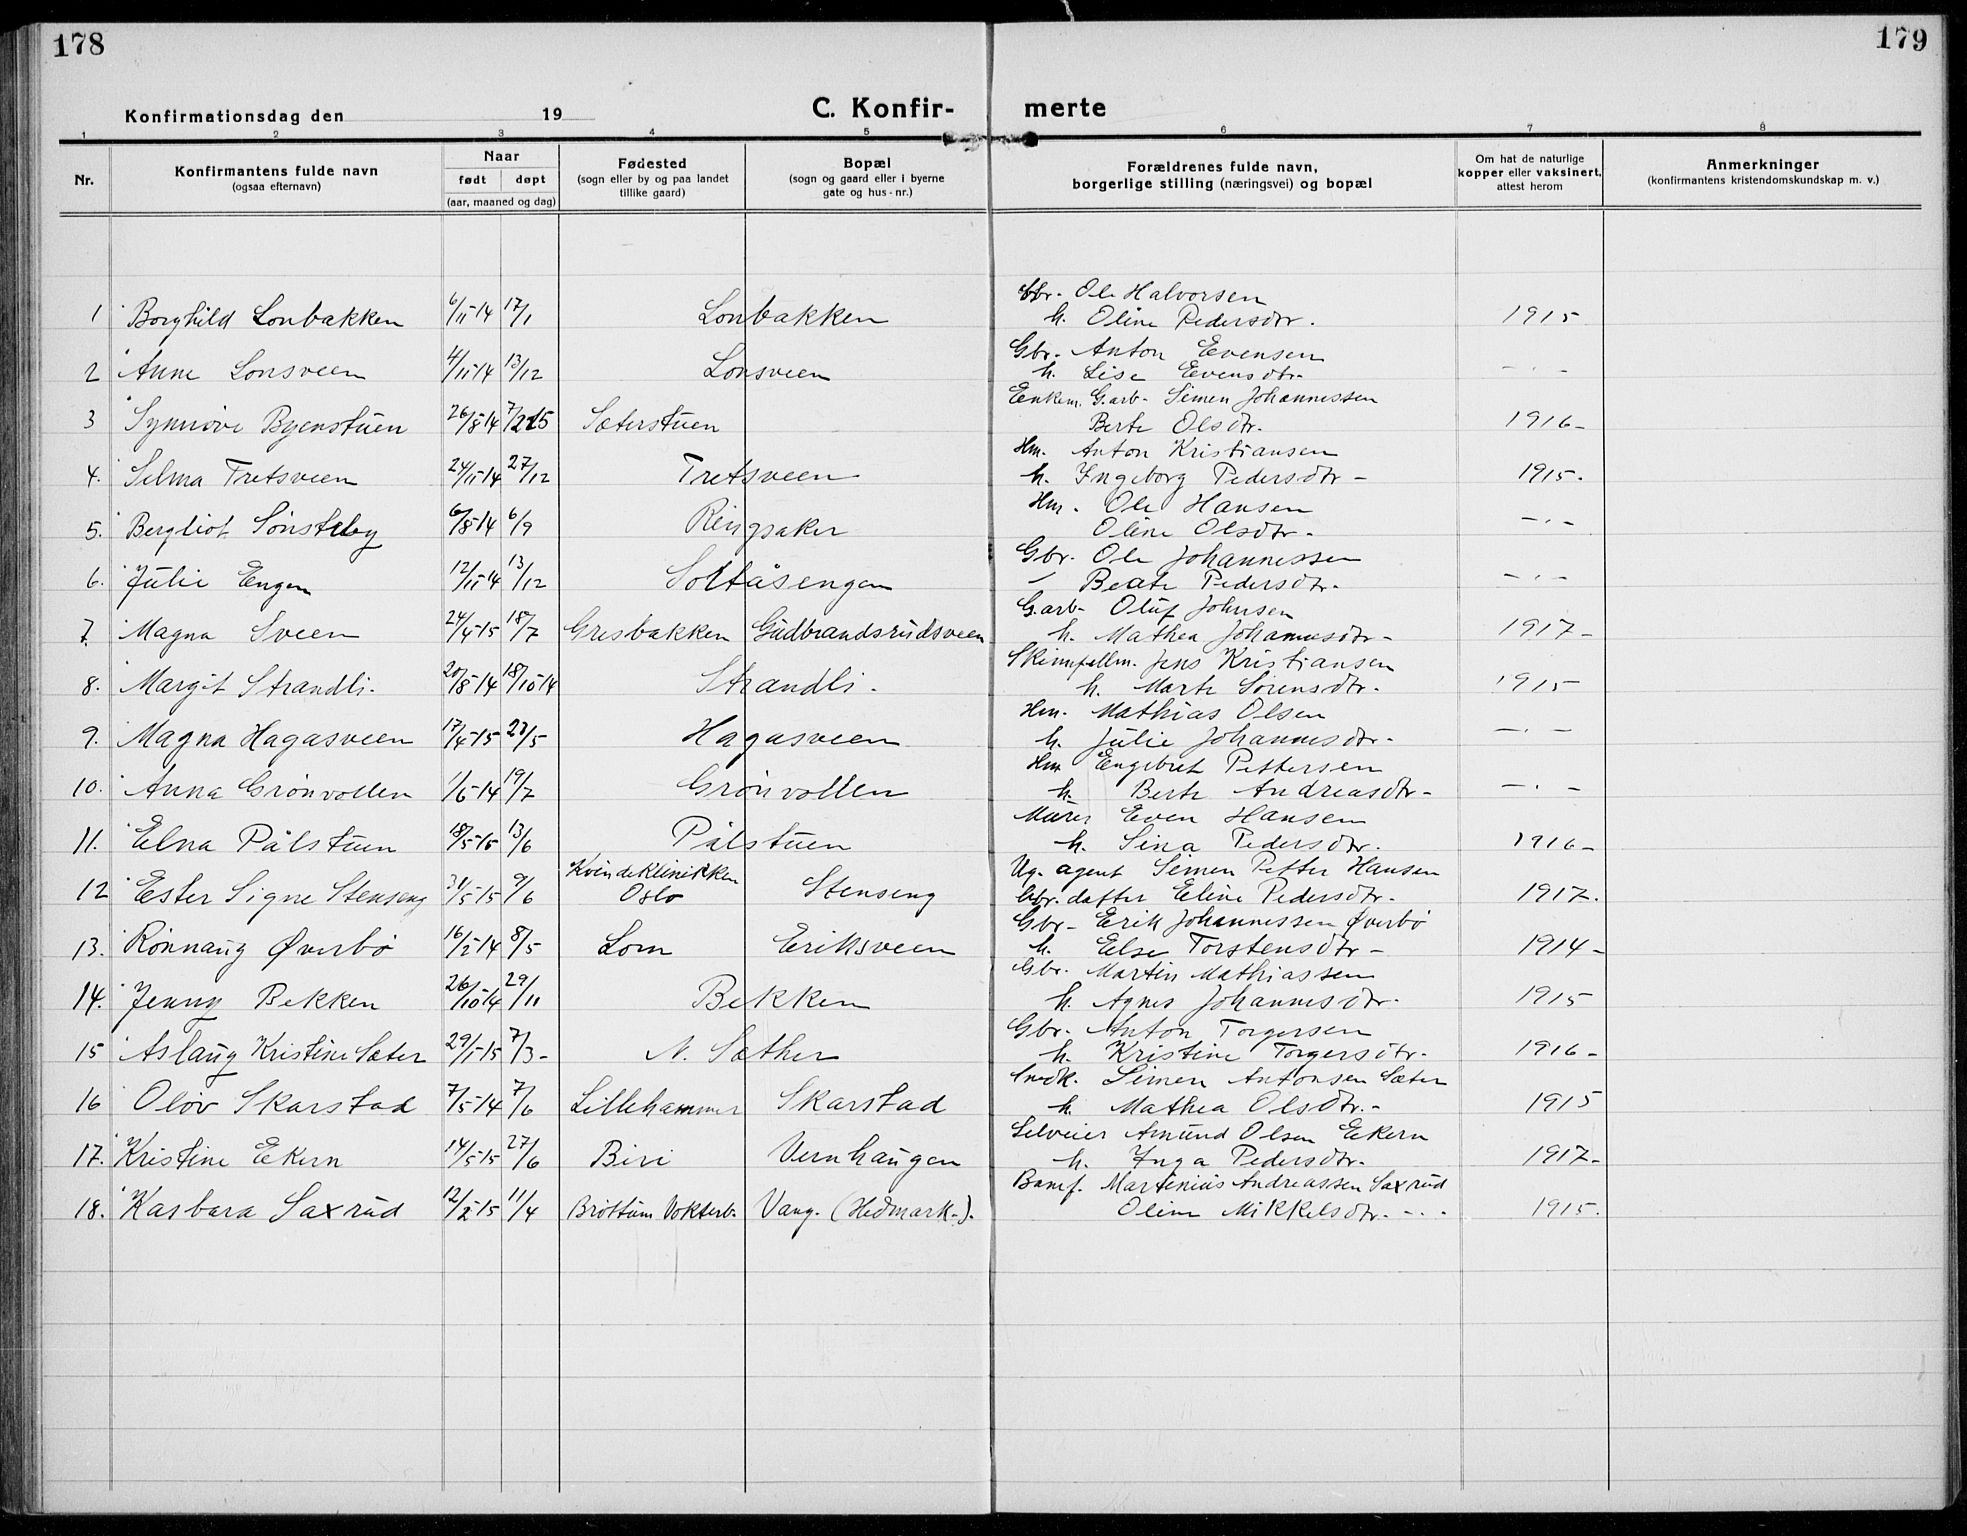 178
179
Konfirmationsdag den 19
C. Konfir- merte
1 2 3 4 5 6 7 8
Nr.
Konfirmantens fulde navn
(ogsaa efternavn)
Naar
født døpt
(aar, maaned og dag)
Fødested
(sogn eller by og paa landet
tillike gaard)
Bopæl
(sogn og gaard eller i byerne
gate og hus-nr.)
Forældrenes fulde navn,
borgerlige stilling (næringsvei) og bopæl
Om hat de naturlige
kopper eller vaksinert,
attest herom
Anmerkninger
(konfirmantens kristendomskundskap m. v.)
Gbr. Ole Halvorsen
1 Borghild Lonbakken 6/11-14 17/1 Lonbakken h. Oline Pedersdtr. 1915
Gbr. Anton Evensen
2 Anne Lonsveen 4/11-14 13/12 Lonsveen h. Lise Evensdtr. - . -
Enkem. G.arb. Simen Johannessen
3 Synnøve Byenstuen 26/8-14 7/2 15 Sæterstuen Berte Olsdtr. 1916-
Hm. Anton Kristiansen
4. Selma Tretsveen 24/11-14 27/12 Tretsveen h. Ingeborg Pedersdtr - 1915.
Hm. Ole Hansen
5. Bergliot Sønsteby 6/8-14 6/9 Ringsaker Oline Olsdtr. - . -
Gbr. Ole Johannessen
6. Julie Engen 12/11-14 13/12 Soltåsengen - Beate Pedersdtr. - . -
G.arb. Oluf Johnsen
7. Magna Sveen 24/4-15 18/7 Grisbakken Gudbrandsrudsveen h. Mathea Johannesdtr - 1917-
Skinnfellm. Jens Kristiansen
8. Margit Strandli. 20/8-14 18/10-14 Strandli. h. Marte Sørensdtr. 1915
Hm. Mathias Olsen
9. Magna Hagasveen 17/4-15 23/5 Hagasveen h. Julie Johannesdtr. - . -
Hm Engebret Pettersen
10. Anna Grønvollen 1/6-14 19/7 Grønvollen h. Berte Andreasdtr - - . -
Murer Even Hansen
11. Elna Pålstuen 18/5-15 13/6 Pålstuen h. Sina Pedersdtr. 1916-
Kvindeklinikken Ug. agent Simen Petter Hansen
12 Ester Signe Stenseng 31/5-15 9/6 Oslo Stenseng Gbr.datter Eline Pedersdtr. 1917.
Gbr - Erik Johannessen Øverbø
13. Rønnaug Øverbø 16/2-14 8/5 Lom Eriksveen h. Else Torstensdtr - 1914-
Gbr. Martin Mathiassen
14. Jenny Bekken 26/10-14 29/11 Bekken h. Agnes Johannesdtr. 1915
Gbr. Anton Torgersen
15 Aslaug Kristine Sæter 29/1-15 7/3- N. Sæther h. Kristine Torgersdtr. 1916-
Simen Antonsen Sæter
16 Oløv Skarstad 7/5-14 7/6 Lillehammer Skarstad h. Mathea Olsdtr.- 1915
Selveier Amund Olsen Eekern
17. Kristine Eekern 14/5-15 27/6 Biri Vernhaugen h. Inga Pedersdtr. 1917-
Banef. Martinius Andreassen Saxrud
18. Karbara Saxrud 12/2-15 11/4 Brøttum Vokterb. Vang. (Hedmark-). Oline Mikkelsdtr. - . - 1915.